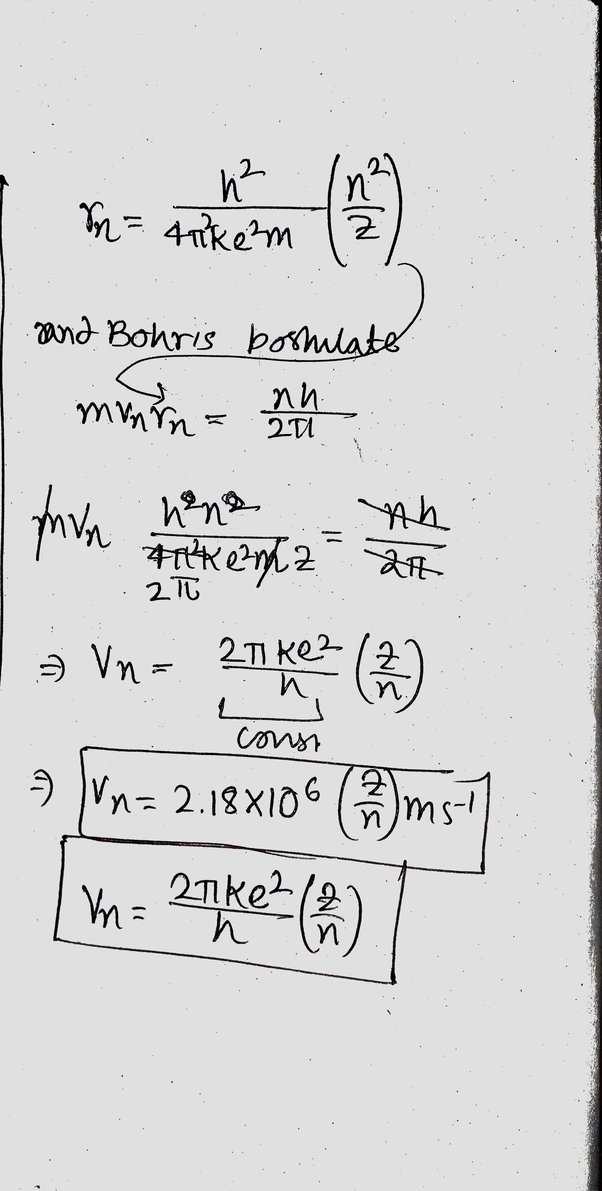 rn = h²/4π²ke²m (n²/z)
and Bohr's postulate
mvnrn = nh/2π
mvn h²n²/4π²ke²mz = nh/2π
2π
⇒ Vn = 2πke²/h (z/n)
const
⇒ Vn = 2.18×10⁶ (z/n) ms⁻¹
Vn = 2πke²/h (z/n)